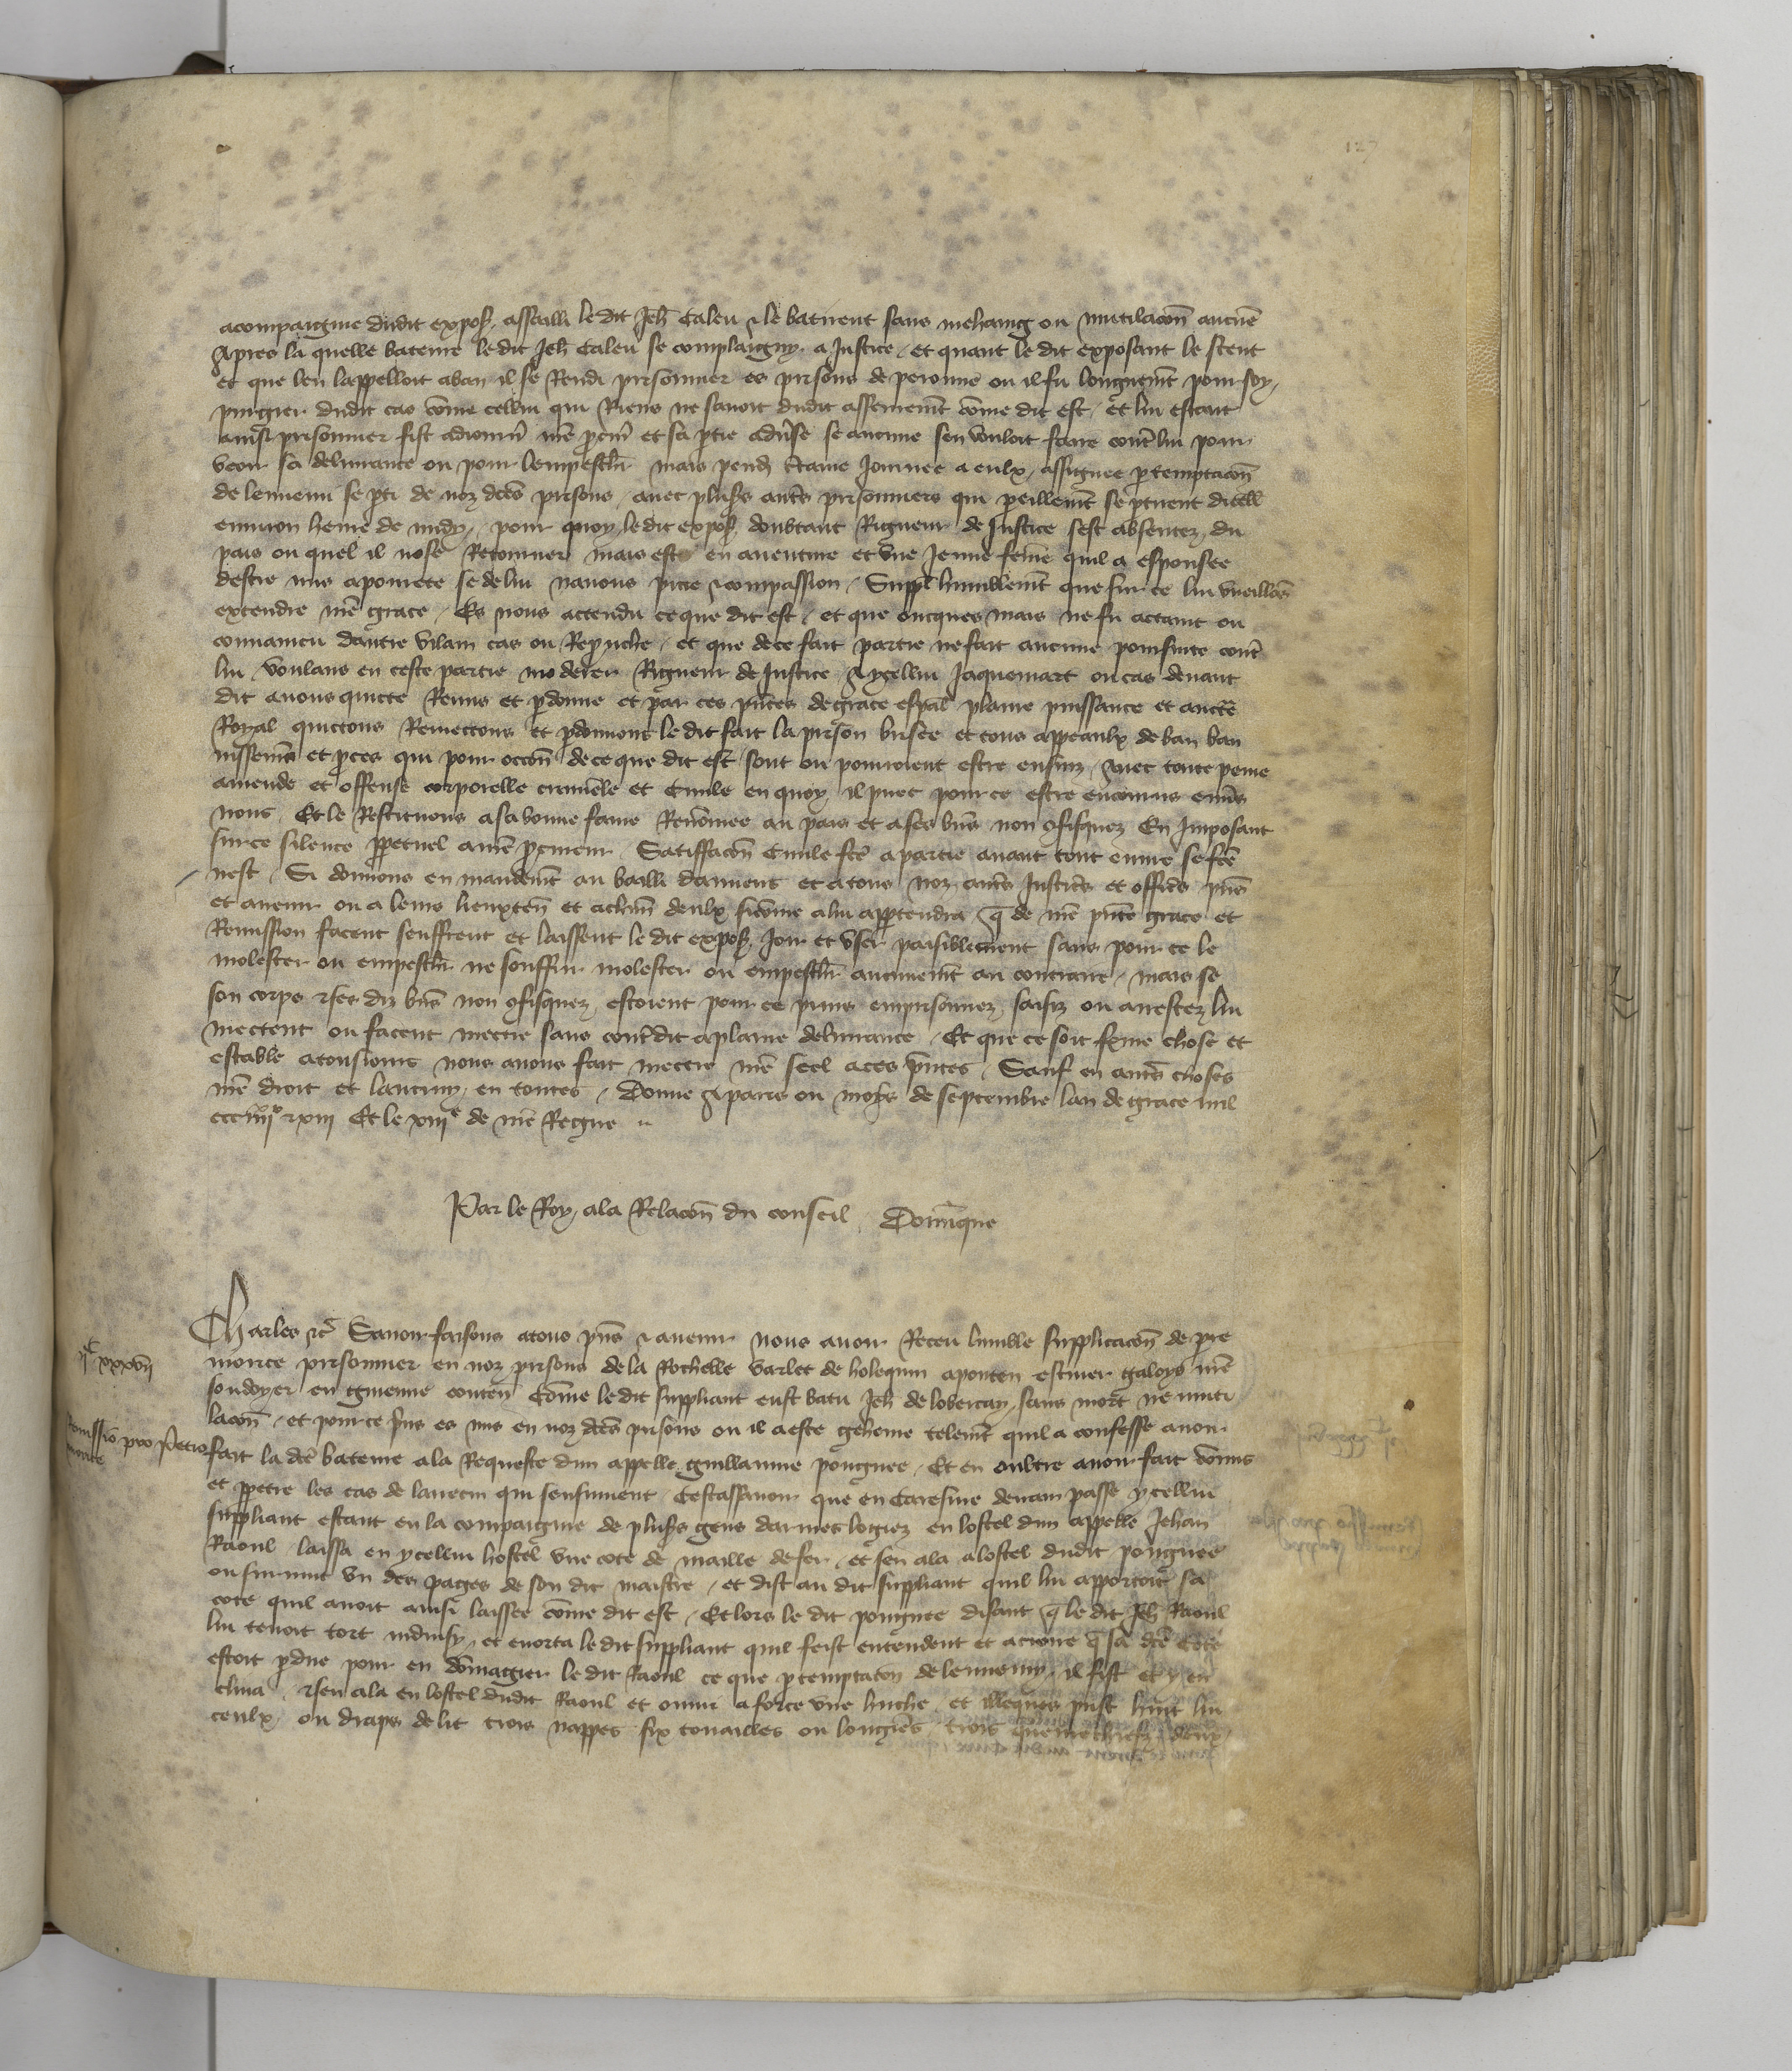 127
acompaignie dudit expos', assailli le dit Jeh Caleu & le batirent sans mehaing ou mutilacion aucune
Apres la quelle bateure le dit Jeh Caleu se complaigny a Justice / et quant le dit exposant le sceut
et que len lappelloit aban il se Rendi prisonnier es prisons de peronne ou il fu longuemt pour soy
purgier dudit cas come cellui qui Riens ne savoit dudit asseurement come dit est / Et lui estant
ainsi prisonnier fist adiourn' nre procur' et sa ptie adverse se aucune sen vouloit faire contre lui pour
veoir sa delivrance ou pour lempesch' mais pend' ctaine Journee a eulx assignee p temptacion
de lennemi se pti de noz dces prisons / avec plus's autres prisonniers qui se ptirent
environ heure de midy / pour quoy le dit expos' doubtant Rigueur de Justice sest absentez du
pais ou quel il nose Retourner mais est en aventure et une Jeune feme quil a espousee
destre mis a povrete se de lui navons pitie & compassion / Suppl' humblemt que sur ce lui vueillons
extendre nre grace / Et nous actendu ce que dit est / et que oncques mais ne fu actaint ou
convaincu dautre vilain cas ou Repuche / et que de ce fait partie ne fait aucune poursuite contre
lui voulans en ceste partie moderer Rigueur de Justice A ycellui Jaquemart ou cas devant
dit avons quicte Remis et pdonne et par ces pntes de grace espal plaine puissance et aucte
Royal quictons Remectons et pdonnons le dit fait la prison brisee et tous appeaulx de ban ban
nissemt et pces qui pour occon de ce que dit est sont ou pourroient estre ensuiz avec toute peine
amende et offense corporelle criminele et Civile en quoy il puet pour ce estre encourus envers
nous Et le Restituons a sa bonne fame Renomee au pais et a ses biens non ofisquez En Imposant
sur ce silence ppetuel a nre pcureur Satiffacion Civile fce a partie avant tout euvre se fce
nest / Si donnons en mandemt au bailli damiens et a tous noz autres Justiciers et officiers pns
et avenir ou a leurs lieuxten' et a chun deulx sicome a lui appartendra q de nre pnte grace et
Remission facent seuffrent et laissent le dit expos' Joir et user paisiblement sans pour ce le
molester ou empesch' ne souffrir molester ou empesch' aucunemt au contraire / mais se
son corps & ses diz biens non ofisquez estoient pour ce prins emprisonnez saisiz ou arrestez lui
mectent ou facent mectre sans contredit a plaine delivrance / Et que ce soit ferme chose et
estable a tousiours nous avons fait mectre nre seel a ces pntes Sauf en autres choses
nre droit et lautruy en toutes / Donne A paris ou moys de septembre lan de grace mil
ccc iiijxx & xiii Et le xiiije de nre Regne
Par le Roy a la Relacon du conseil Domique
ijc xxxvij
Remissio pro Petro
morice
Charles &c Savoir faisons a tous pns & avenir nous avoir Receu lumble supplicacion de pre
morice prisonnier en noz prisons de la Rochelle varlet de escuier galoys nre
soudoyer en guienne conten' Come le dit suppliant eust batu Jeh de sans mort ne muti
lacon / et pour ce prins et mis en noz dces prisons ou il a este gehine telemt quil a confesse avoir
fait la dce bateure a la Requeste dun appelle guillaume pougnee / Et en oultre avoir fait comis
et ppetre les cas de larrecin qui sensuivent Cestassavoir que en Caresme derrain passe ycellui
suppliant estant en la compaignie de plus's gens darmes logiez en lostel dun appelle Jehan
Raoul laissa en ycellui hostel une cote de maille de fer / et sen ala a lostel dudit pougnee
ou survint un des pages de son dit maistre / et dist au dit suppliant quil lui apportoit sa
cote quil avoit ainsi laissee come dit est / Et lors le dit pougnee disant q le dit Jeh Raoul
lui tenoit tort induisy et enorta le dit suppliant quil feist entendent et acroire q sa dce cote
estoit pdue pour en domagier le dit Raoul ce que p temptaton de lennemy il fist et y en
clina & sen ala en lostel dudit Raoul et ouvri a force une huche et illeques prist huit lin
ceulx ou draps de lit trois nappes six touailles ou longieres trois queuvrechiefz deux